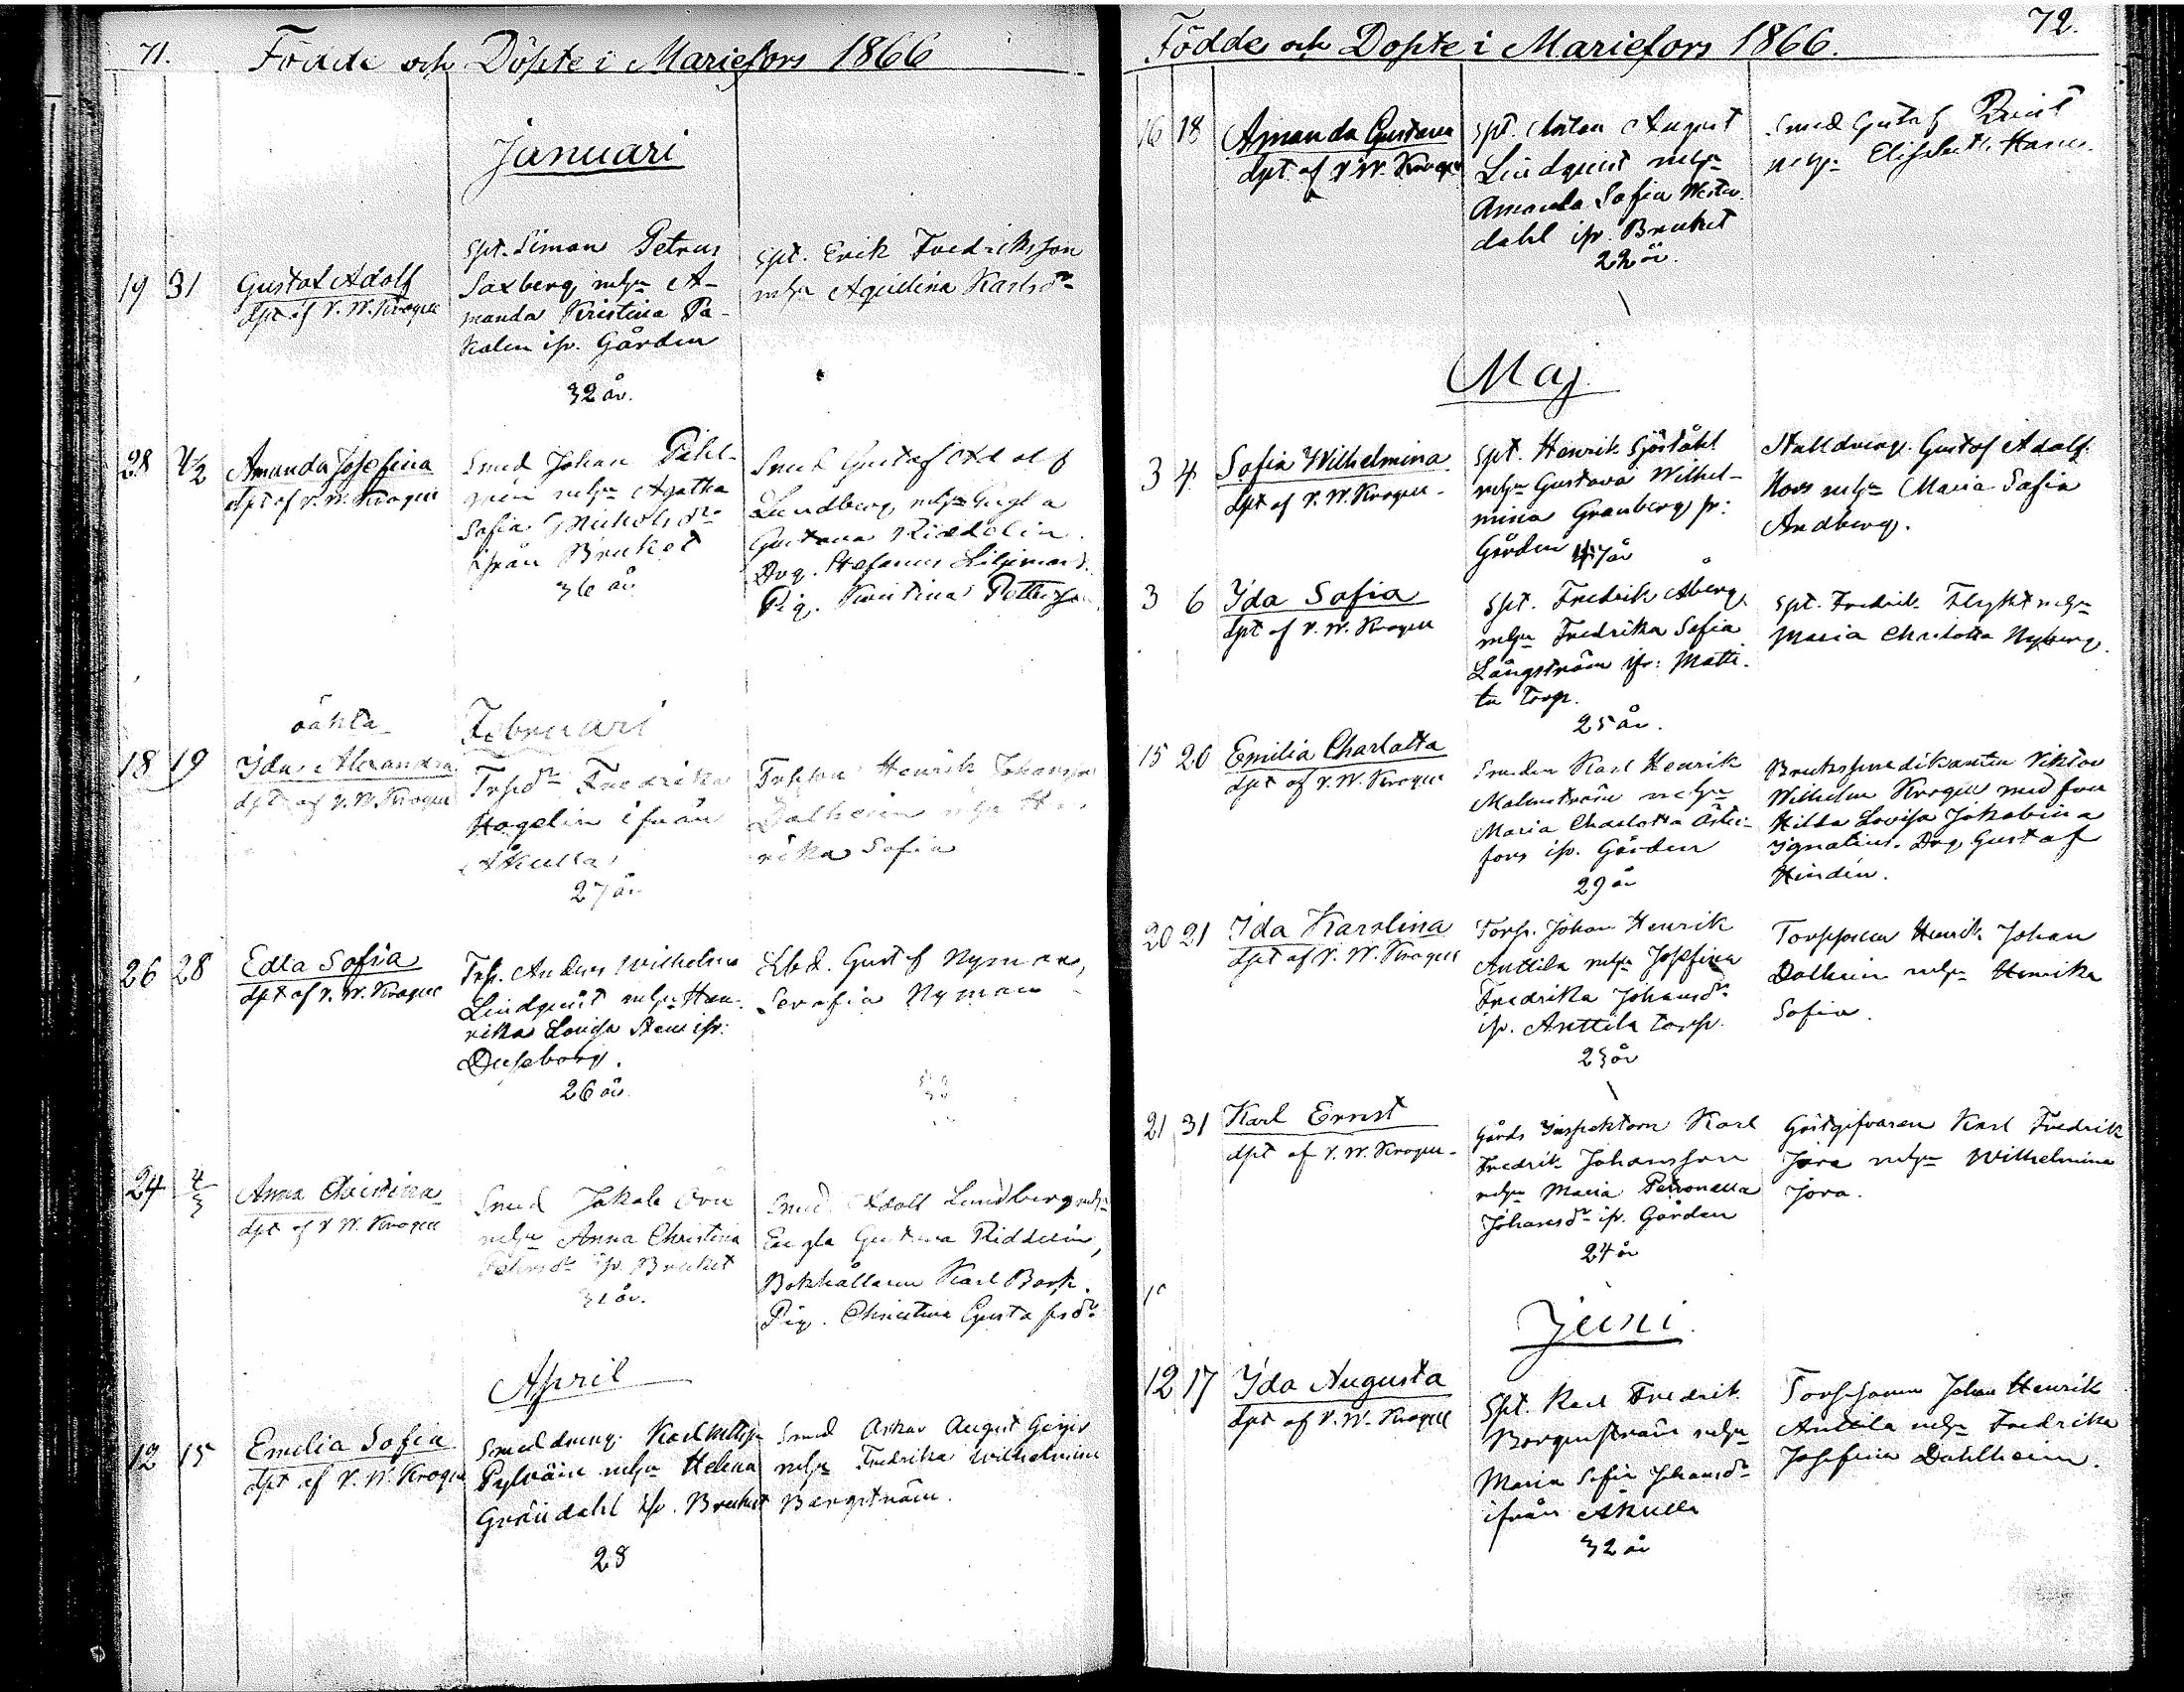 71. Födde och Döpte i Mariefors 1866
Januari
19 31 Gustaf Adolf
dpt af V. W. Krogell
Spt. Simon Petrus
Saxberg mhu A-
manda Kristina Pa-
kalen ifr. Gården
32 år.
Spt. Erik Fredriksson
mhu Aqvilina Karlsdr
28 4/2 Amanda Josefina
dpt af V. W. Krogell
Smed Johan Pihl-
mhu Agatha
Sofia
ifrån Bruket
36 år
Smed Gustaf Adolf
Lundberg mhu Engla
Gustava
Drg. Stefanus
Pig. Kristina
oäkta Februari
18 19 Ida Alexandra
dpt af V. W. Krogell
Trpdr Fredrika
Hagelin ifrån
Åkulla
27 år
Torparn Henrik Johansson
Dalheim mhu
rika Sofia
26 28 Edla Sofia
dpt af V. W. Krogell
Trp. Anders Wilhelm
Lindquist mhu Hen-
rika Lovisa Sten ifr.
26 år
Gust f Nyman,
Serafia Nyman
24 4/3 Anna Christina
dpt af V. W. Krogell
Smed Jakob
mhu Anna Christina
ifr. Bruket
31 år.
Smed Adolf Lundberg mhu
Engla Gustava
Bokhållaren Karl Bark.
Pig. Christina Gustafsdr
April
12 15 Emilia Sofia
dpt af V. W. Krogell
Smeddreng. Karl
mhu Helena
Gröndahl ifr. Bruket
28
Smed Oskar August
mhu Fredrika Wilhelmina
Bergström.
Födde och Döpte i Mariefors 1866. 72.
16 18 Amanda Gustava
dpt af V. W. Krogell
Spt. Anton August
Lindquist mhu
Amanda Sofia Wester-
dahl ifr. Bruket
22 år.
Smed Gustaf
mhu
Maj
3 4 Sofia Wilhelmina
dpt af V. W. Krogell
Spt. Henrik Sjöståhl
mhu Gustava Wilhel-
mina Granberg fr:
Gården 47 år
Stalldreng. Gustaf Adolf
mhu Maria Sofia
Andberg.
3 6 Ida Sofia
dpt af V. W. Krogell
Spt. Fredrik Åberg
mhu Fredrika Sofia
Långström ifr: Matti-
la torp.
25 år.
Spt. Fredrik Flykt mhu
Maria Charlotta Nyberg.
15 20 Emilia Charlotta
dpt af V. W. Krogell
Smeden Karl Henrik
Malmström mhu
Maria Charlotta Öster-
fors ifr. Gården
29 år
Brukspredikanten Viktor
Wilhelm Krogell med fru
Hilda Lovisa Jakobina
Ignatius. Drg. Gustaf
Hindén.
20 21 Ida Karolina
dpt af V. W. Krogell
Torp. Johan Henrik
Anttila mhu Josefina
Fredrika Johansdr
ifr. Anttila torp.
25 år
Torpparen Henrik Johan
Dalheim mhu Henrika
Sofia.
21 31 Karl Ernst
dpt af V. W. Krogell
Gårds Inspektorn Karl
Fredrik Johansson
mhu Maria Petronella
Johansdr ifr. Gården
24 år
Gästgifvaren Karl Fredrik
Jora mhu Wilhelmina
Jora.
Juni.
12 17 Ida Augusta
dpt af V. W. Krogell
Spt. Karl Fredrik
Borgenström mhu
Maria Sofia Johansdr
ifrån Åkulla
32 år
Torpparen Johan Henrik
Anttila mhu Fredrika
Josefina Dahlheim.